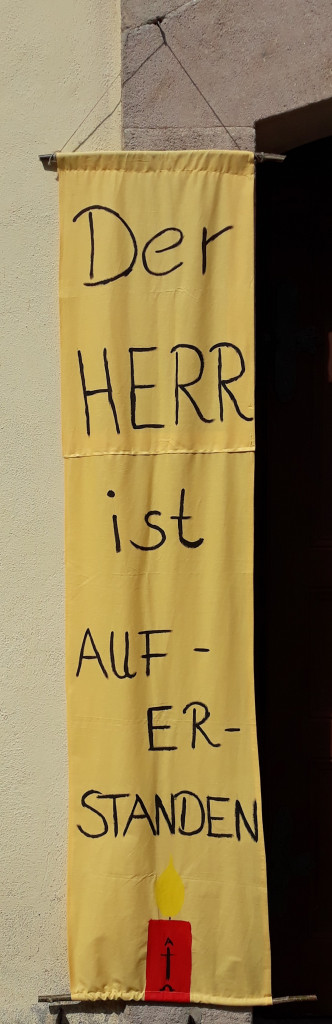 Der
HERR
ist
AUF-
ER-
STANDEN